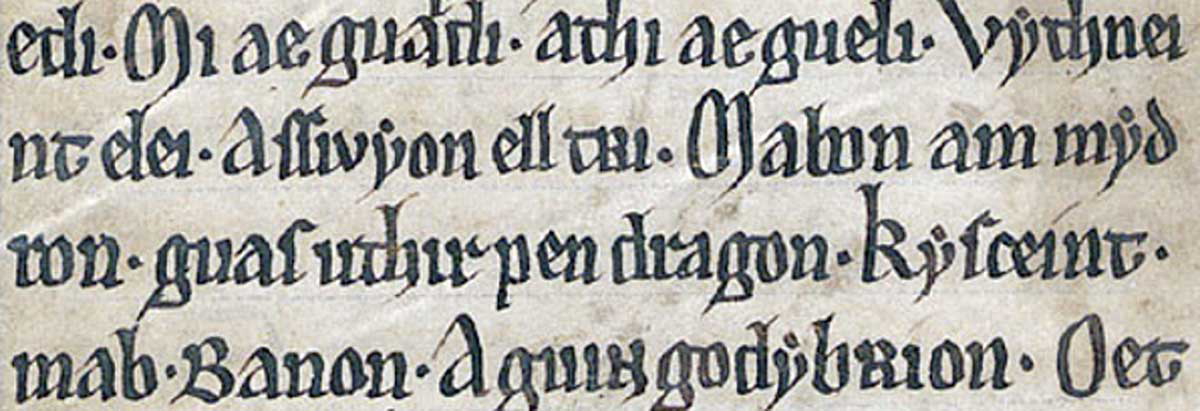 edi. Mi ae guardi. athi ae gueli. Vythnei
nt elei. Assivyon ell tri. Mabon am myd
ron. guas uthir pen dragon. Kysceint.
mab. Banon. A guir godybrion. Oet